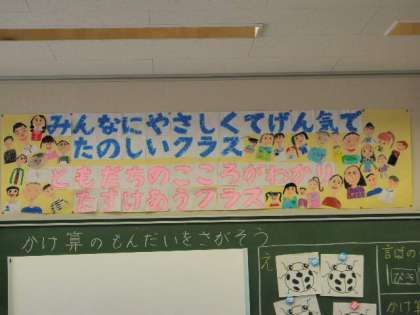 みんなにやさしくてげん気で
たのしいクラス
ともだちのこころがわかり
たすけあうクラス
かけ算のもんだいをさがそう
え
かけ算